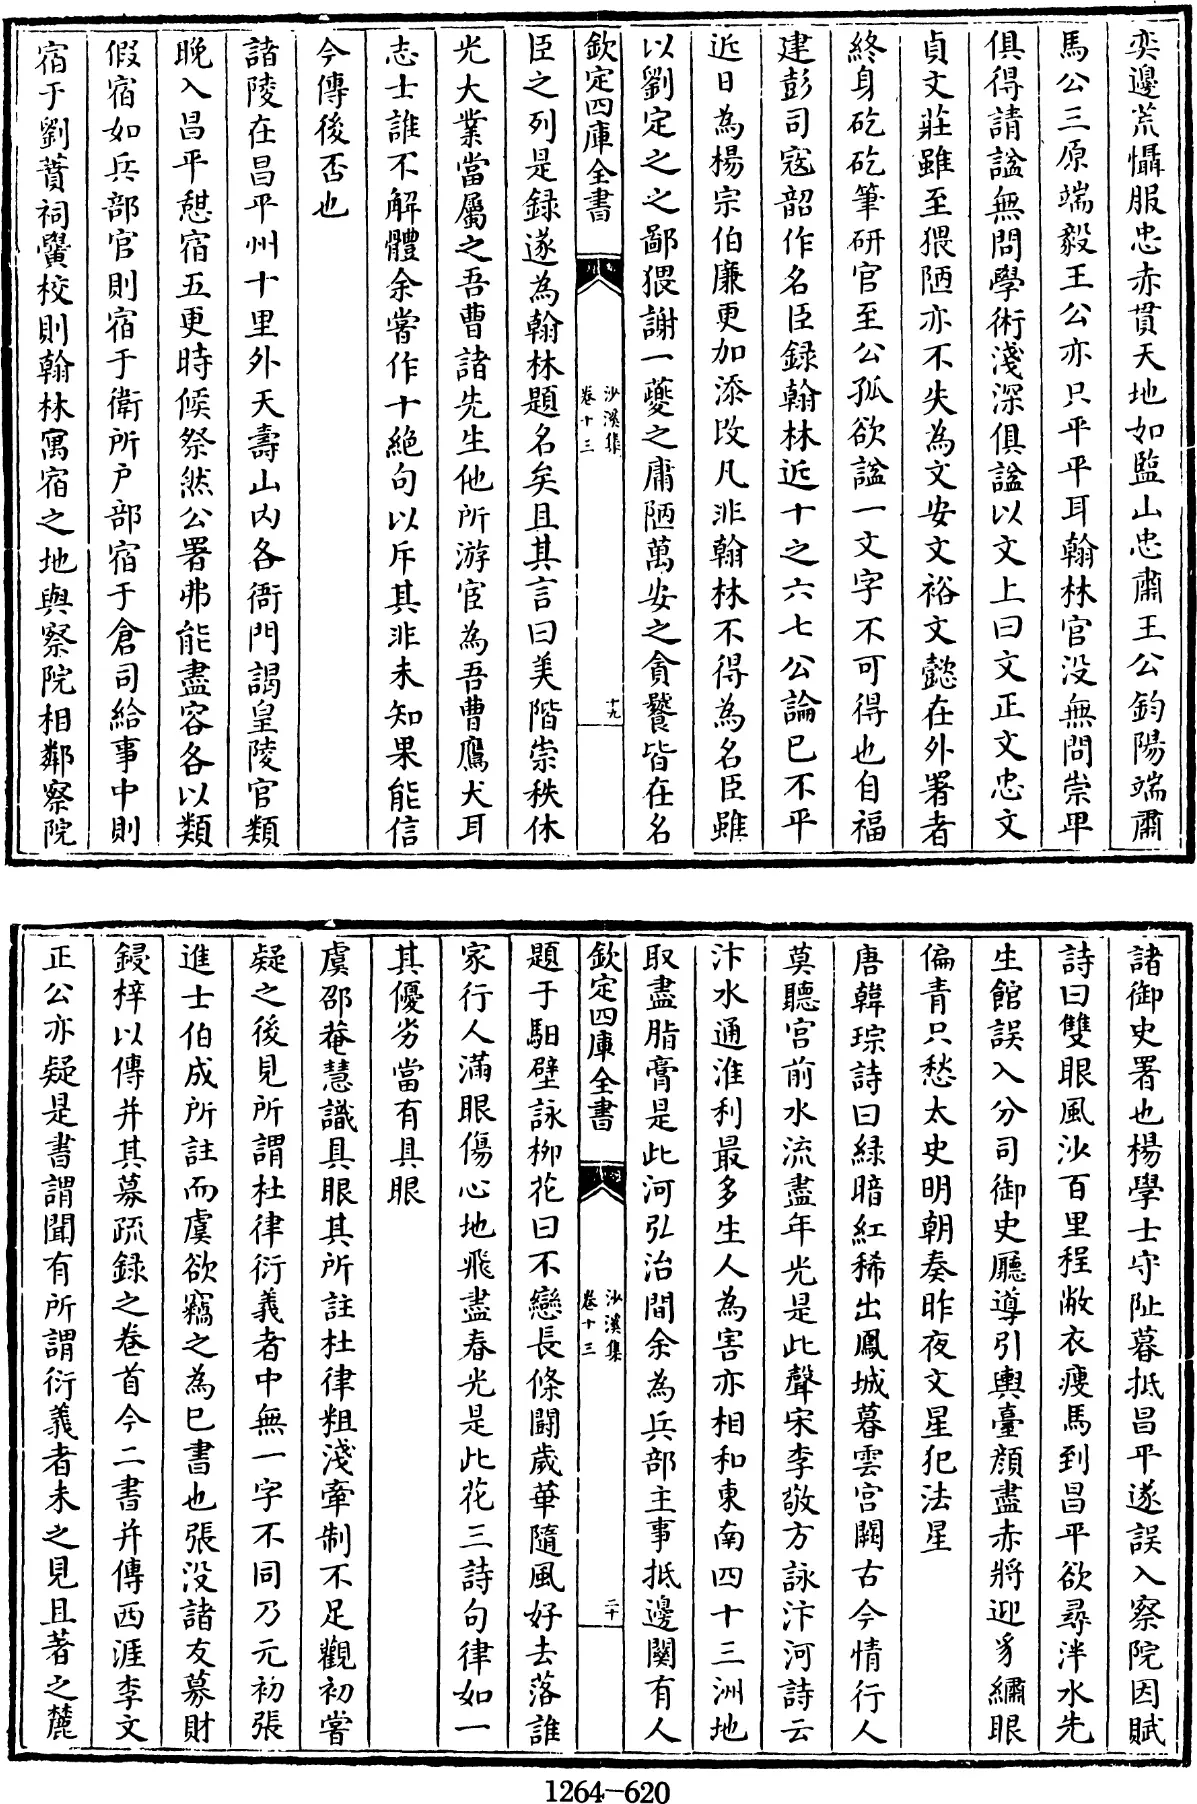 奕邊荒懾服忠赤貫天地如監山忠肅王公鈞陽端肅
馬公三原端毅王公亦只平平耳翰林官没無問崇卑
俱得請諡無問學術淺深俱諡以文上曰文正文忠文
貞文莊雖至猥陋亦不失為文安文裕文懿在外署者
終身矻矻筆研官至公孤欲諡一文字不可得也自福
建彭司寇韶作名臣録翰林近十之六七公論已不平
近日為楊宗伯廉更加添改凡非翰林不得為名臣雖
以劉定之之鄙猥謝一夔之庸陋萬安之貪饕皆在名
欽定四庫全書
沙溪集
卷十三
十九
臣之列是録遂為翰林題名矣且其言曰美階崇秩休
光大業當屬之吾曹諸先生他所游宦為吾曹鷹犬耳
志士誰不解體余嘗作十絶句以斥其非未知果能信
今傳後否也
諸陵在昌平州十里外天壽山内各衙門謁皇陵官類
晚入昌平憇宿五更時候祭然公署弗能盡容各以類
假宿如兵部官則宿于衛所户部宿于倉司給事中則
宿于劉蕡祠黌校則翰林寓宿之地與察院相鄰察院
諸御史署也楊學士守阯暮抵昌平遂誤入察院因賦
詩曰雙眼風沙百里程敝衣瘦馬到昌平欲尋泮水先
生館誤入分司御史廳導引輿臺顔盡赤將迎豸繡眼
偏青只愁太史明朝奏昨夜文星犯法星
唐韓琮詩曰緑暗紅稀出鳳城暮雲宫闕古今情行人
莫聽宫前水流盡年光是此聲宋李敬方詠汴河詩云
汴水通淮利最多生人為害亦相和東南四十三洲地
取盡脂膏是此河弘治間余為兵部主事抵邊關有人
欽定四庫全書
沙溪集
卷十三
二十
題于馹壁詠栁花曰不戀長條鬪歲華隨風好去落誰
家行人滿眼傷心地飛盡春光是此花三詩句律如一
其優劣當有具眼
虞邵菴慧識具眼其所註杜律粗淺牽制不足觀初嘗
疑之後見所謂杜律衍義者中無一字不同乃元初張
進士伯成所註而虞欲竊之為已書也張没諸友募財
鋟梓以傳并其募疏録之卷首今二書并傳西涯李文
正公亦疑是書謂聞有所謂衍義者未之見且著之麓
1264-620